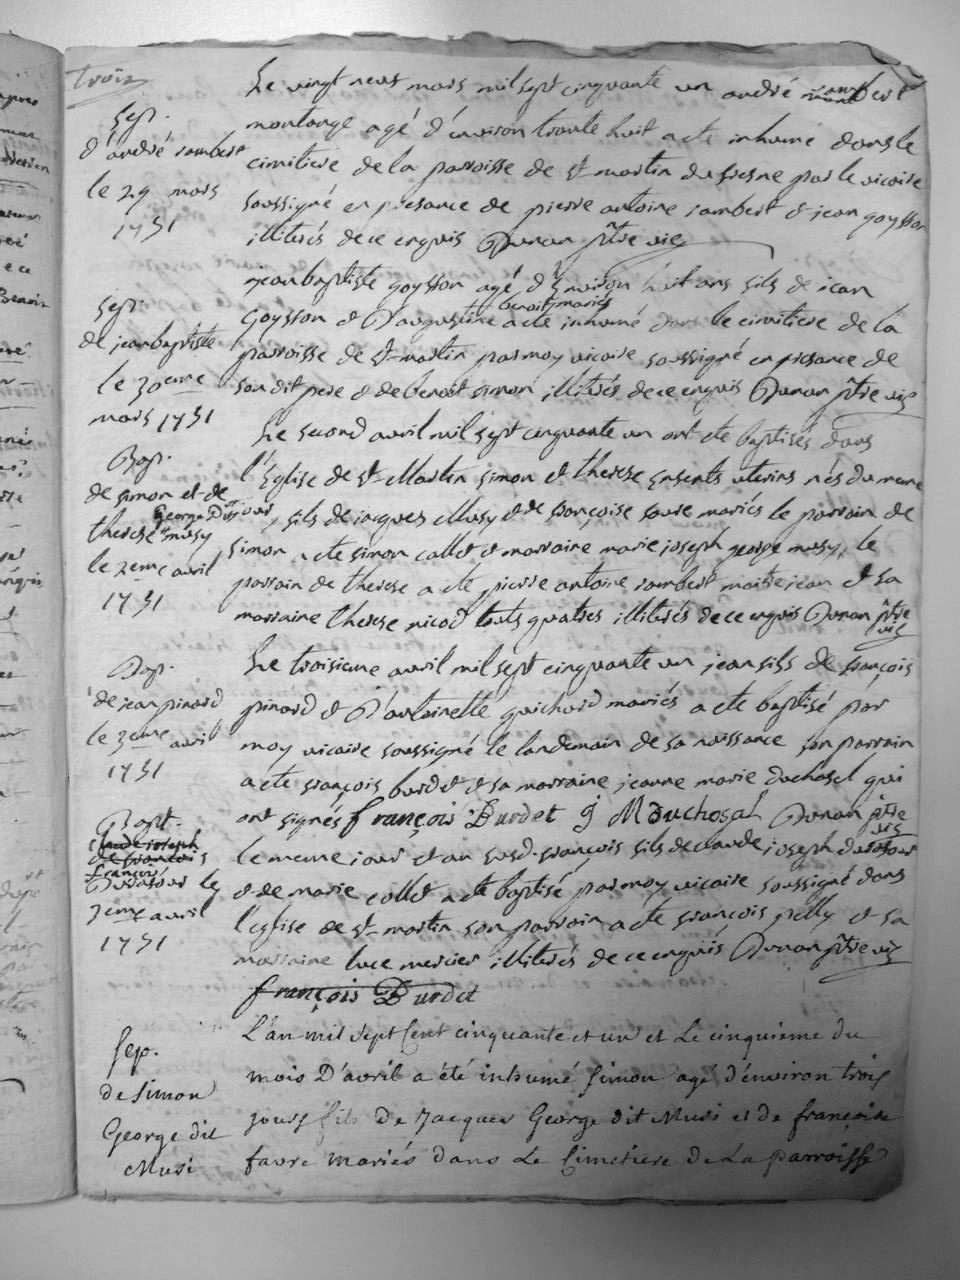 trois
Sep.
d'andré rambert
le 29 mars
1751
Le vingt neuf mars mil sept cinquante un andré rambert
moulange agé d'environ trante huit a été inhumé dans le
cimitiere de la parroisse de st martin du fresne par le vicaire
soussigné en présance de pierre antoine rambert et jean goysson
illiterés de ce enquis Dunan ptre vic
Sep.
de jean baptiste
le 30eme
mars 1751
jean baptiste goysson agé d'environ huit ans fils de jean
goysson et D'augustine benoit mariés a été inhumé dans le cimitiere de la
parroisse de st martin par moy vicaire soussigné en présance de
son dit pere et de benoit simon illiterés de ce enquis Dunan ptre vic
Bap.
de simon et de
therese George Dit musy
le 2eme avril
1751
Le second avril mil sept cinquante un ont été baptisés dans
l'Eglise de st Martin simon et therese enfents uterins nés du meme
jour, fils de jacques Musy et de françoise favre mariés le parrain de
simon a été simon collet et marraine marie joseph george musy, le
parrain de therese a été pierre antoine rambert maitre jean et sa
marraine therese nicod touts quatres illiterés de ce enquis Dunan ptre
vic
Bap.
de jean pinard
le 3eme avril
1751
Le troisieme avril mil sept cinquante un jean fils de françois
pinard et D'antoinette guichard mariés a été baptisé par
moy vicaire soussigné le landemain de sa naissance son parrain
a été françois burdet et sa marraine jeanne marie duchosal qui
ont signés françois Burdet j M Duchosal Dunan ptre
vic
Bapt.
claude joseph
de françois
françois
Durafour le
3eme avril
1751
le meme jour et an susd. françois fils de claude joseph durafour
et de marie collet a été baptisé par moy vicaire soussigné dans
l'eglise de st martin son parrain a été françois pelly et sa
marraine luce mercier illiterés de ce enquis Dunan ptre vic
françois Burdet
Sep.
de Simon
George dit
Musi
L'an mil sept cent cinquante et un et Le cinquieme du
mois D'avril a été inhumé Simon agé d'environ trois
jours fils De Jacques George dit Musi et de françoise
favre mariés dans Le Cimetiere de La parroisse